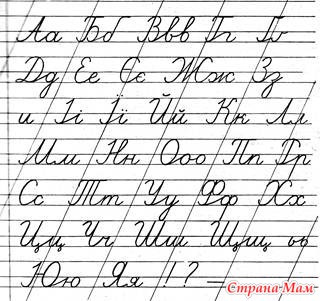 Аа Бб Ввв Гг Ґґ
Дд Ее Єє Жж Зз
и Іі Її Йй Кк Лл
Мм Нн Ооо Пп Рр
Сс Тт Уу Фф Хх
Цц Чч Шш Щщ ь
Юю Яя ! ? —
Страна Мам